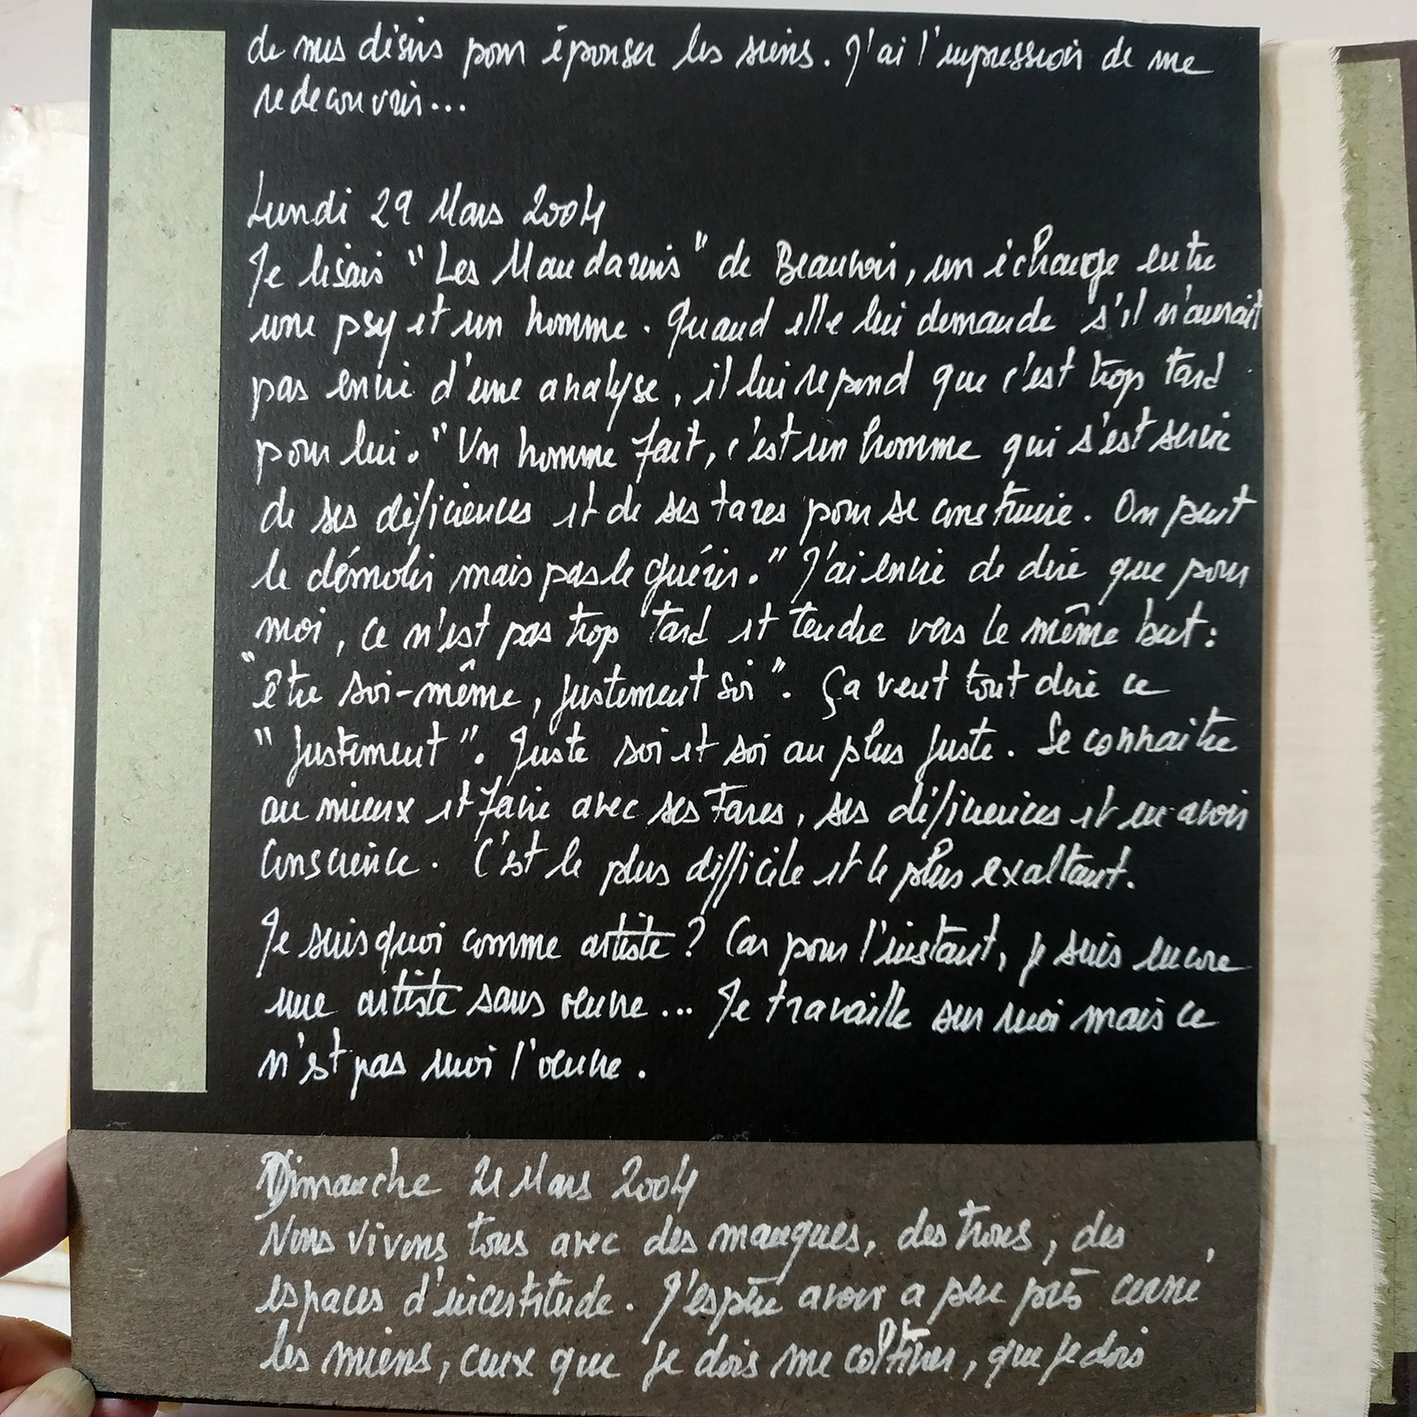 de mes désirs pour épouser les siens. J'ai l'impression de me
redecouvrir...
Lundi 29 Mars 2004
Je lisais "Les Mandarins" de Beauvoir, un échange entre
une psy et un homme. Quand elle lui demande s'il n'aurait
pas envie d'une analyse, il lui repond que c'est trop tard
pour lui. "Un homme fait, c'est un homme qui s'est servie
de ses déficiences et de ses tares pour se construire. On peut
le démolir mais pas le guérir." J'ai envie de dire que pour
moi, ce n'est pas trop tard et tendre vers le même but:
"être soi-même, justement soi". Ça veut tout dire ce
"justement". Juste soi et soi au plus juste. Se connaitre
au mieux et faire avec ses tares, ses déficiences et en avoir
conscience. C'est le plus difficile et le plus exaltant.
Je suis quoi comme artiste? Car pour l'instant, je suis encore
une artiste sans œuvre... Je travaille sur moi mais ce
n'est pas moi l'œuvre.
Dimanche 21 Mars 2004
Nous vivons tous avec des manques, des trous, des
espaces d'incertitude. J'espère avoir a peu près cerné
les miens, ceux que je dois me coltiner, que je dois